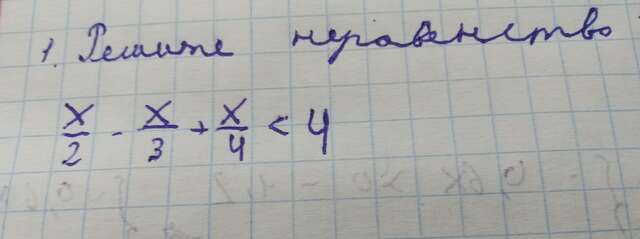 1. Решите неравенство
x/2 - x/3 + x/4 < 4